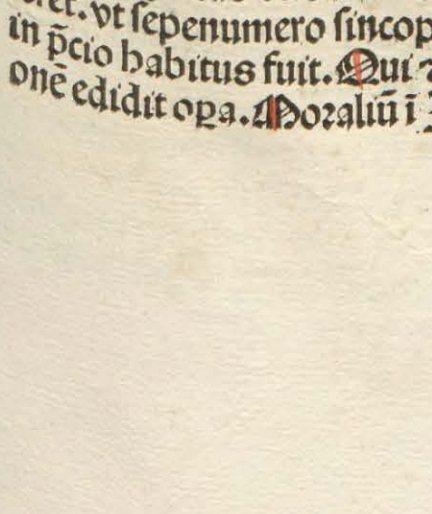 vt sepenumero sincop
in p̄cio habitus fuit. Qui
onē edidit oꝑa. Moraliū ī